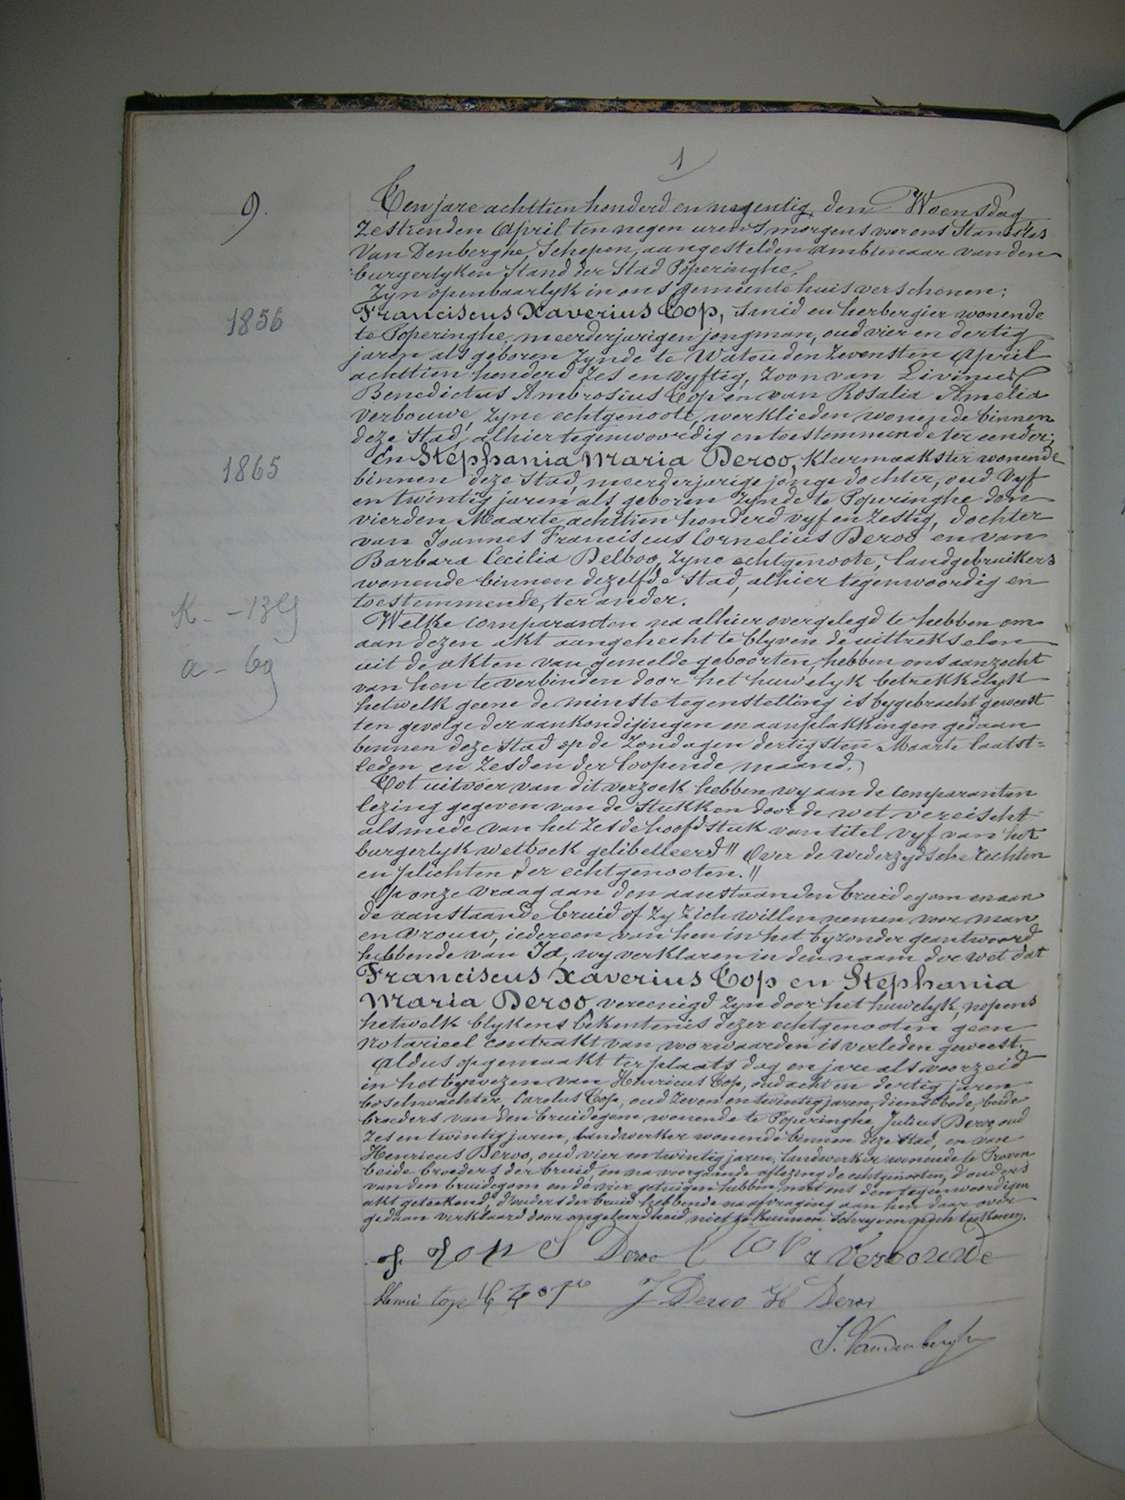 9.
Ten jare achttien honderd en negentig, den Woensdag
zestienden April ten negen uren 's morgens voor ons Stanislas
Van Denberghe, Schepen, aangestelden ambtenaar van den
burgerlyken stand der Stad Poperinghe.
Zyn openbaarlyk in ons gemeentehuis verschenen:
1856
Franciscus Xaverius Top, smid en herbergier wonende
te Poperinghe, meerderjarigen jongman, oud vier en dertig
jaren als geboren zynde te Watou den zevensten April
achttien honderd zes en vyftig, zoon van Livinus
Benedictus Ambrosius Top en van Rosalia Amelia
Verbouwe, zyne echtgenoote, werklieden wonende binnen
deze Stad, alhier tegenwoordig en toestemmende ter eender;
1865
En Stephania Maria Deroo, kleermaakster wonende
binnen deze Stad, meerderjarige jonge dochter, oud vyf
en twintig jaren als geboren zynde te Poperinghe den
vierden Maarte achttien honderd vyf en zestig, dochter
van Joannes Franciscus Cornelius Deroo en van
Barbara Cecilia Delboo, zyne echtgenoote, landgebruikers
wonende binnen dezelfde Stad, alhier tegenwoordig en
toestemmende, ter ander.
Welke comparanten na alhier overgelegd te hebben om
aan dezen akt aangehecht te blyven de uittrekselen
uit de akten van gemelde geboorten, hebben ons aanzocht
van hen te verbinden door het huwelyk betrekkelyk
hetwelk geene de minste tegenstelling is bygebracht geweest
ten gevolge der aankondigingen en aanplakkingen gedaan
binnen deze Stad op de Zondagen dertigsten Maarte laatst=
leden en zesden der loopende maand.
Tot uitvoer van dit verzoek hebben wy aan de comparanten
lezing gegeven van de stukken door de wet vereischt
alsmede van het zesde hoofdstuk van titel vyf van het
burgerlyk wetboek gelibelleerd "Over de wederzydsche rechten
en plichten der echtgenooten."
Op onze vraag aan den aanstaanden bruidegom en aan
de aanstaande bruid of zy zich willen nemen voor man
en vrouw, iedereen van hen in het byzonder geantwoord
hebbende van Ja, wy verklaren in den naam der wet dat
Franciscus Xaverius Top en Stephania
Maria Deroo, vereenigd zyn door het huwelyk, nopens
hetwelk blykens bekentenis dezer echtgenooten geen
notarieel contrakt van voorwaarden is verleden geweest.
Aldus opgemaakt ter plaats dag en jare als voorzeid
in het bywezen van Henricus Top, oud acht en dertig jaren
boschwachter, Carolus Top, oud zeven en twintig jaren, dienstbode, beide
broeders van den bruidegom wonende te Poperinghe, Julius Deroo, oud
zes en twintig jaren, landwerker wonende binnen deze Stad, en van
Henricus Deroo, oud vier en twintig jaren, landwerker wonende te Proven
beide broeders der bruid, en na voorgaande aflezing de echtgenooten, d'ouders
van den bruidegom en de vier getuigen hebben met ons den tegenwoordigen
akt geteekend, d'ouders der bruid hebbende na afvraging aan hen daar over
gedaan verklaard door ongeleerdheid niet te kunnen schryven noch teekenen.
f. Top S Deroo L Top a Verbouwe
Henri top J Deroo H Deroo
S. Vandenberghe